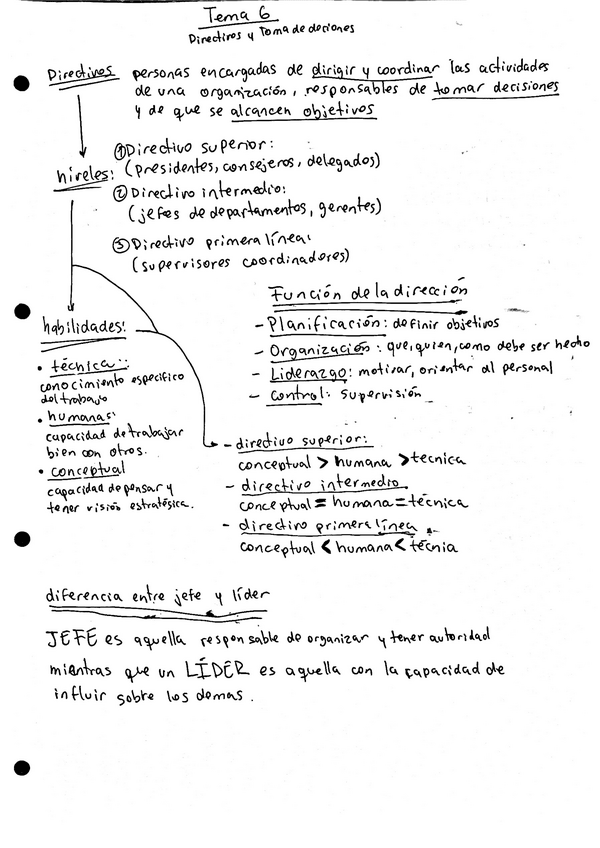 Tema 6
Directivos y toma de decisiones
Directivos personas encargadas de dirigir y coordinar las actividades
de una organización, responsables de tomar decisiones
y de que se alcancen objetivos
niveles:
① Directivo superior:
(presidentes, consejeros, delegados)
② Directivo intermedio:
(jefes de departamentos, gerentes)
③ Directivo primera línea:
(supervisores coordinadores)
habilidades:
• técnica:
conocimiento específico
del trabajo
• humanas:
capacidad de trabajar
bien con otros.
• conceptual
capacidad de pensar y
tener visión estratégica.
Función de la dirección
- Planificación: definir objetivos
- Organización: que, quien, como debe ser hecho
- Liderazgo: motivar, orientar al personal
- control: supervisión
- directivo superior:
conceptual > humana > tecnica
- directivo intermedio.
conceptual = humana = técnica
- directivo primera línea
conceptual < humana < técnia
diferencia entre jefe y líder
JEFE es aquella responsable de organizar y tener autoridad
mientras que un LÍDER es aquella con la capacidad de
influir sobre los demas.